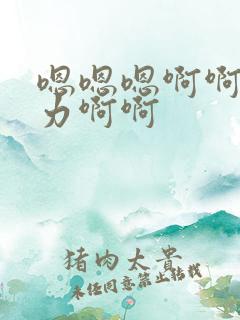 嗯嗯嗯啊啊
力啊啊
猪肉太贵
未经同意禁止转载